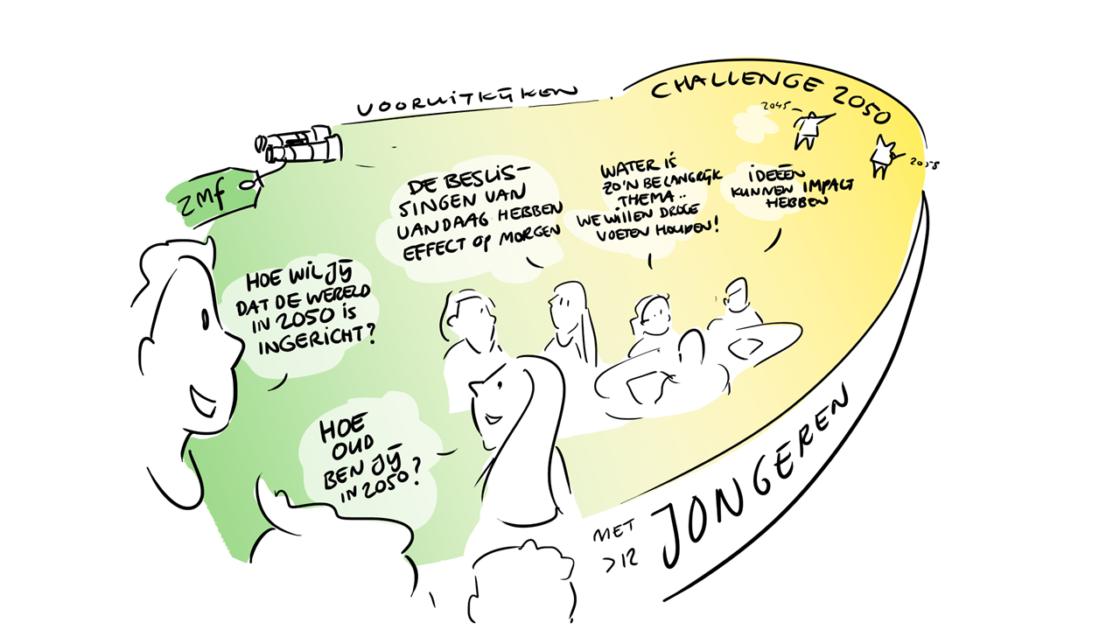 VOORUITKIJKEN
CHALLENGE 2050
2045
2058
zmf
DE BESLIS-
SINGEN VAN
VANDAAG HEBBEN
EFFECT OP MORGEN
WATER IS
ZO'N BELANGRIJK
THEMA..
WE WILLEN DROGE
VOETEN HOUDEN!
IDEEËN
KUNNEN IMPACT
HEBBEN
HOE WIL JIJ
DAT DE WERELD
IN 2050 IS
INGERICHT?
HOE
OUD
BEN JIJ
IN 2050?
MET
>12
JONGEREN